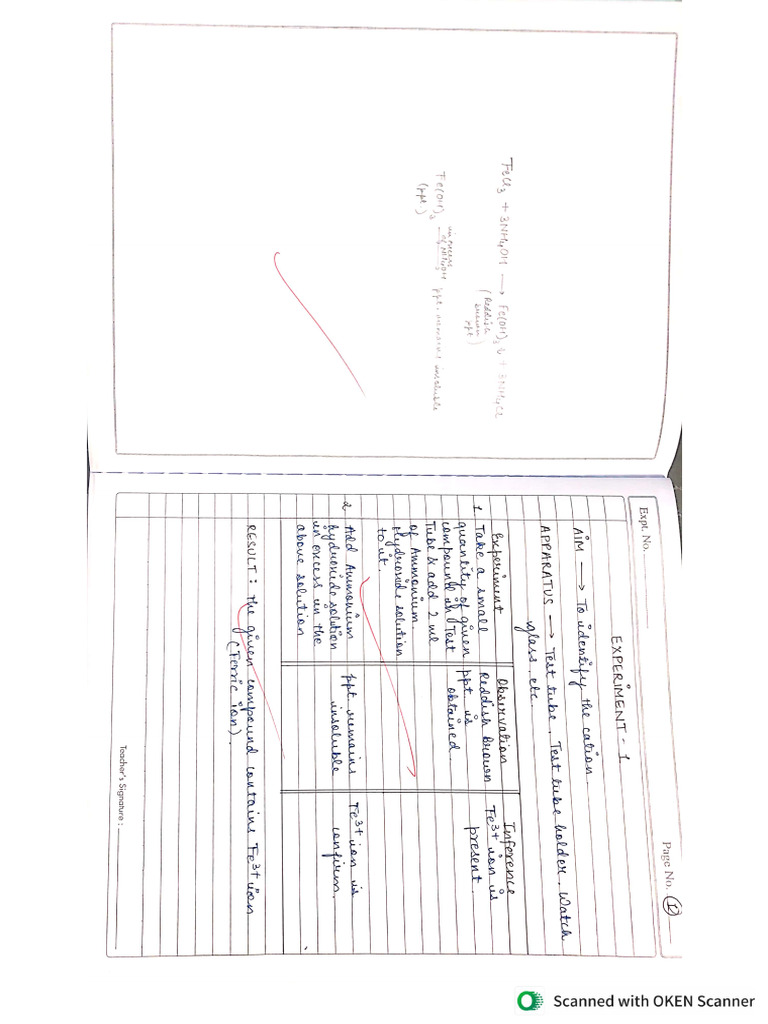 FeCl₃ + 3NH₄OH → Fe(OH)₃↓ + 3NH₄Cl
(Reddish
brown
ppt)
in excess
Fe(OH)₃ of NH₄OH → ppt. remains insoluble
(ppt.)
Expt. No.
Page No. 1
EXPERIMENT - 1
AIM → To identify the cation.
APPARATUS → Test tube, Test tube holder, Watch
glass, etc.
Experiment Observation Inference
1. Take a small Reddish Brown Fe³⁺ ion is
quantity of given ppt is present.
compound in Test obtained.
Tube & add 2 ml
of Ammonium
Hydroxide solution
to it.
2. Add Ammonium ppt. remains Fe³⁺ ion is
hydroxide solution insoluble confirm.
in excess in the
above solution
RESULT : The given compound contains Fe³⁺ ion
(Ferric ion).
Teacher's Signature :
Scanned with OKEN Scanner